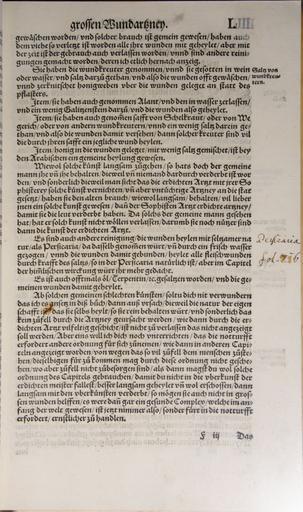 grossen Wundartzney. LIII
gewäschen worden/ vnd solcher brauch ist gemein gewesen/ haben auch
dem viehe so verletzt ist worden alle ihre wunden mit geheylet/ aber mit
der zeit ist der gebrauch auch verlassen worden/ vnnd sind andere reini-
gungen gemacht worden/ deren ich etlich hernach anzeig.
Sie haben die wundkreuter genommen/ vnnd sie gesotten in wein
oder wasser/ vnd saltz darzů gethan/ vnd also die wunden offt gewäschen/
vnnd zerknitschet vber die wunden geleget an statt des
pflasters.
Saltz von
wundkreu-
tern.
Item/ sie haben auch genommen Alaut/ vnd den in wasser zerlassen/
vnd ein wenig darzů/ vnd die wunden also geheylet.
Item/ sie haben auch genomen safft von Schelkraut/ oder von We
gerich/ oder von andern wundkreutern/ vnnd ein wenig saltz darein ge-
than/ vnd also die wunden damit vertriben/ dann solcher kreuter sind vil
die durch ihren safft ein jegliche wund heylen.
Item/ honig in die wunden geleget/ mit wenig saltz gemischet/ ist bey
den Arabischen ein gemeine heylung gewesen.
Wiewol solche künst langsam zůgehen/ so hats doch der gemeine
mann jhe vn jhe behalten/ dieweil vn niemand dardurch verderbt ist wor
den/ vnd sonderlich dieweil man sicht das die erdichten Artzt mit jrer So
phisterey solche künst vernichten/ vn aber vnrichtige Artzney an die statt
gesetzt/ haben sie den alten brauch/ wiewol langsam/ behalten/ vil lieber
dann ein solche kunst gewesen/ das der Sophisten Artzt erdichte artzney/
damit sie die leut verderbt haben. Da solchs der gemeine mann gesehen
hat/ hat er solch künst nicht wöllen verlassen/ darumb sie noch nützer sind
dann die kunst der erdichten Artzt.
Es sind auch andere reinigung die wunden heylen mit seltzamer na
tur/ als Persicaria/ da dasselb genomen würt/ vn durch ein frisch wasser
gezogen/ vnnd die wunden damit gebunden/ heylet alle fleischwunden
durch krafft des saltz/ so in der Persicaria natürlich ist/ aber im Capitel
der himlischen wirckung würt jhr mehr gedacht.
Persicaria
fol. 216
Es ist auch offtmals öl/ Terpentin/ ꝛc. gesaltzen worden/ vnd die ge-
meinen wunden damit geheylet.
Ab solchen gemeinen schlechten künsten/ solen dich nit verwundern
das ich es gantz in diß bůch/ dann auß vrsach/ dieweil die natur der eigen
schafft ist/ das sie selbs heylt/ so sie rein behalten würt/ vnd sonderlich das
kein zůfell durch die Artzney gemischt werden/ wie dann durch die er-
dichten Artzt vilfeltig geschicht/ ist nicht zů verlassen das nicht angezeigt
soll werden. Aber eins will ich dich noch vnterrichten/ das die notturfft
erfordert andere ordnung für sich zůnemen/ wie dann in andern Capit-
teln angezeiget worden/ von wegen das so vil zůfell dem menschen zůste-
hen/ dieselbigen für zů kommen mag durch diese ordnung nicht gesche-
hen/ wo aber zůfell nicht zůbesorgen sind/ als dann magst du wol solche
ordnung des Capitels gebrauchen/ damit du nicht in die vberkunst der
erdichten meister fallest/ besser langsam geheylet vn wol erschossen/ dann
langsam mit den vberkünsten verderbt/ so mögen sie auch nicht in gros-
sen wunden helffen/ es were dan gar ein gesunde Complex/ welche im an-
fang der welt gewesen/ ist jetz nimmer also/ sonder fürt in die notturfft
erfordert/ ernstlicher zů handlen.
F iij Das